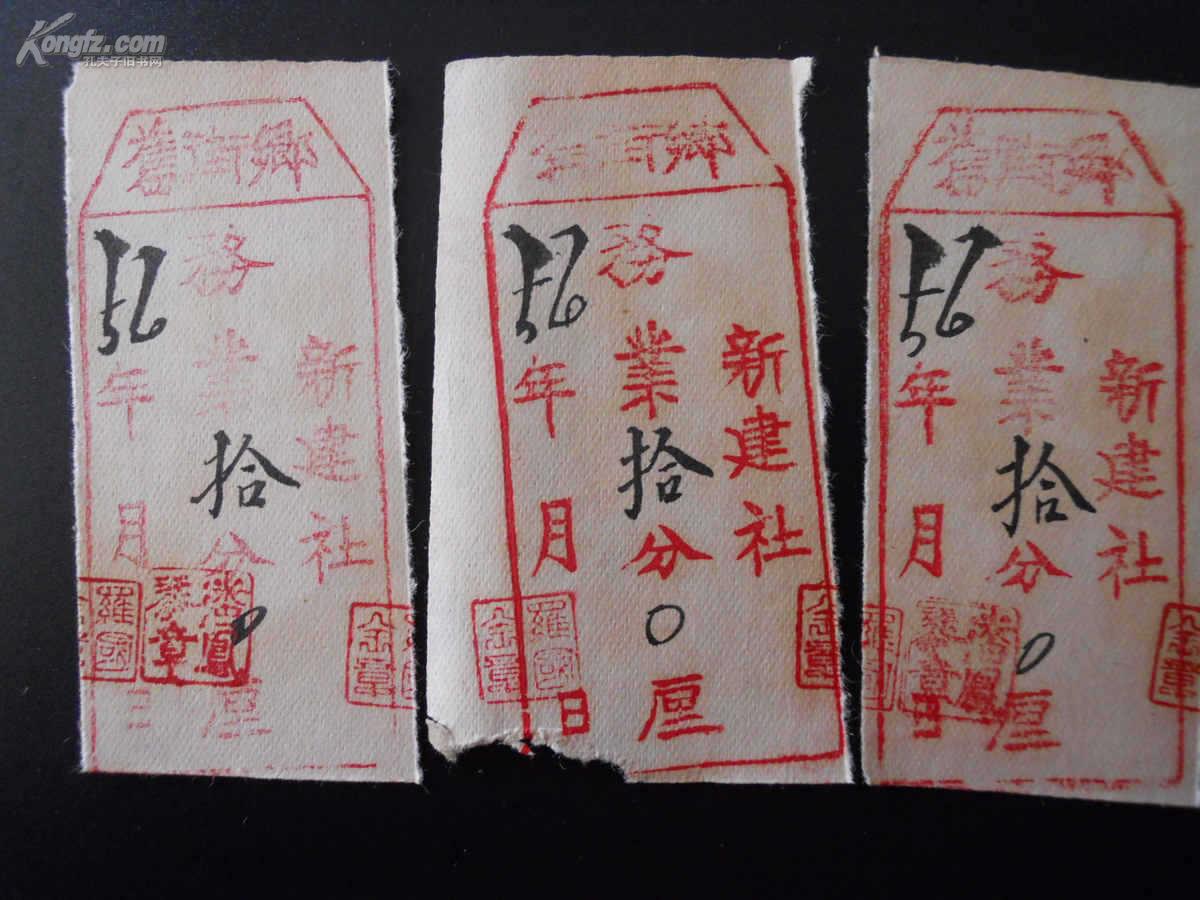 Kongfz.com
孔夫子旧书网
舊街鄉
新建社
務業拾分0厘
56年 月 日
羅國
金章
鄉
新建社
務業拾分0厘
56年 月 日
羅國
金章
金章
舊街鄉
新建社
務業拾分0厘
56年 月 日
羅國
金章